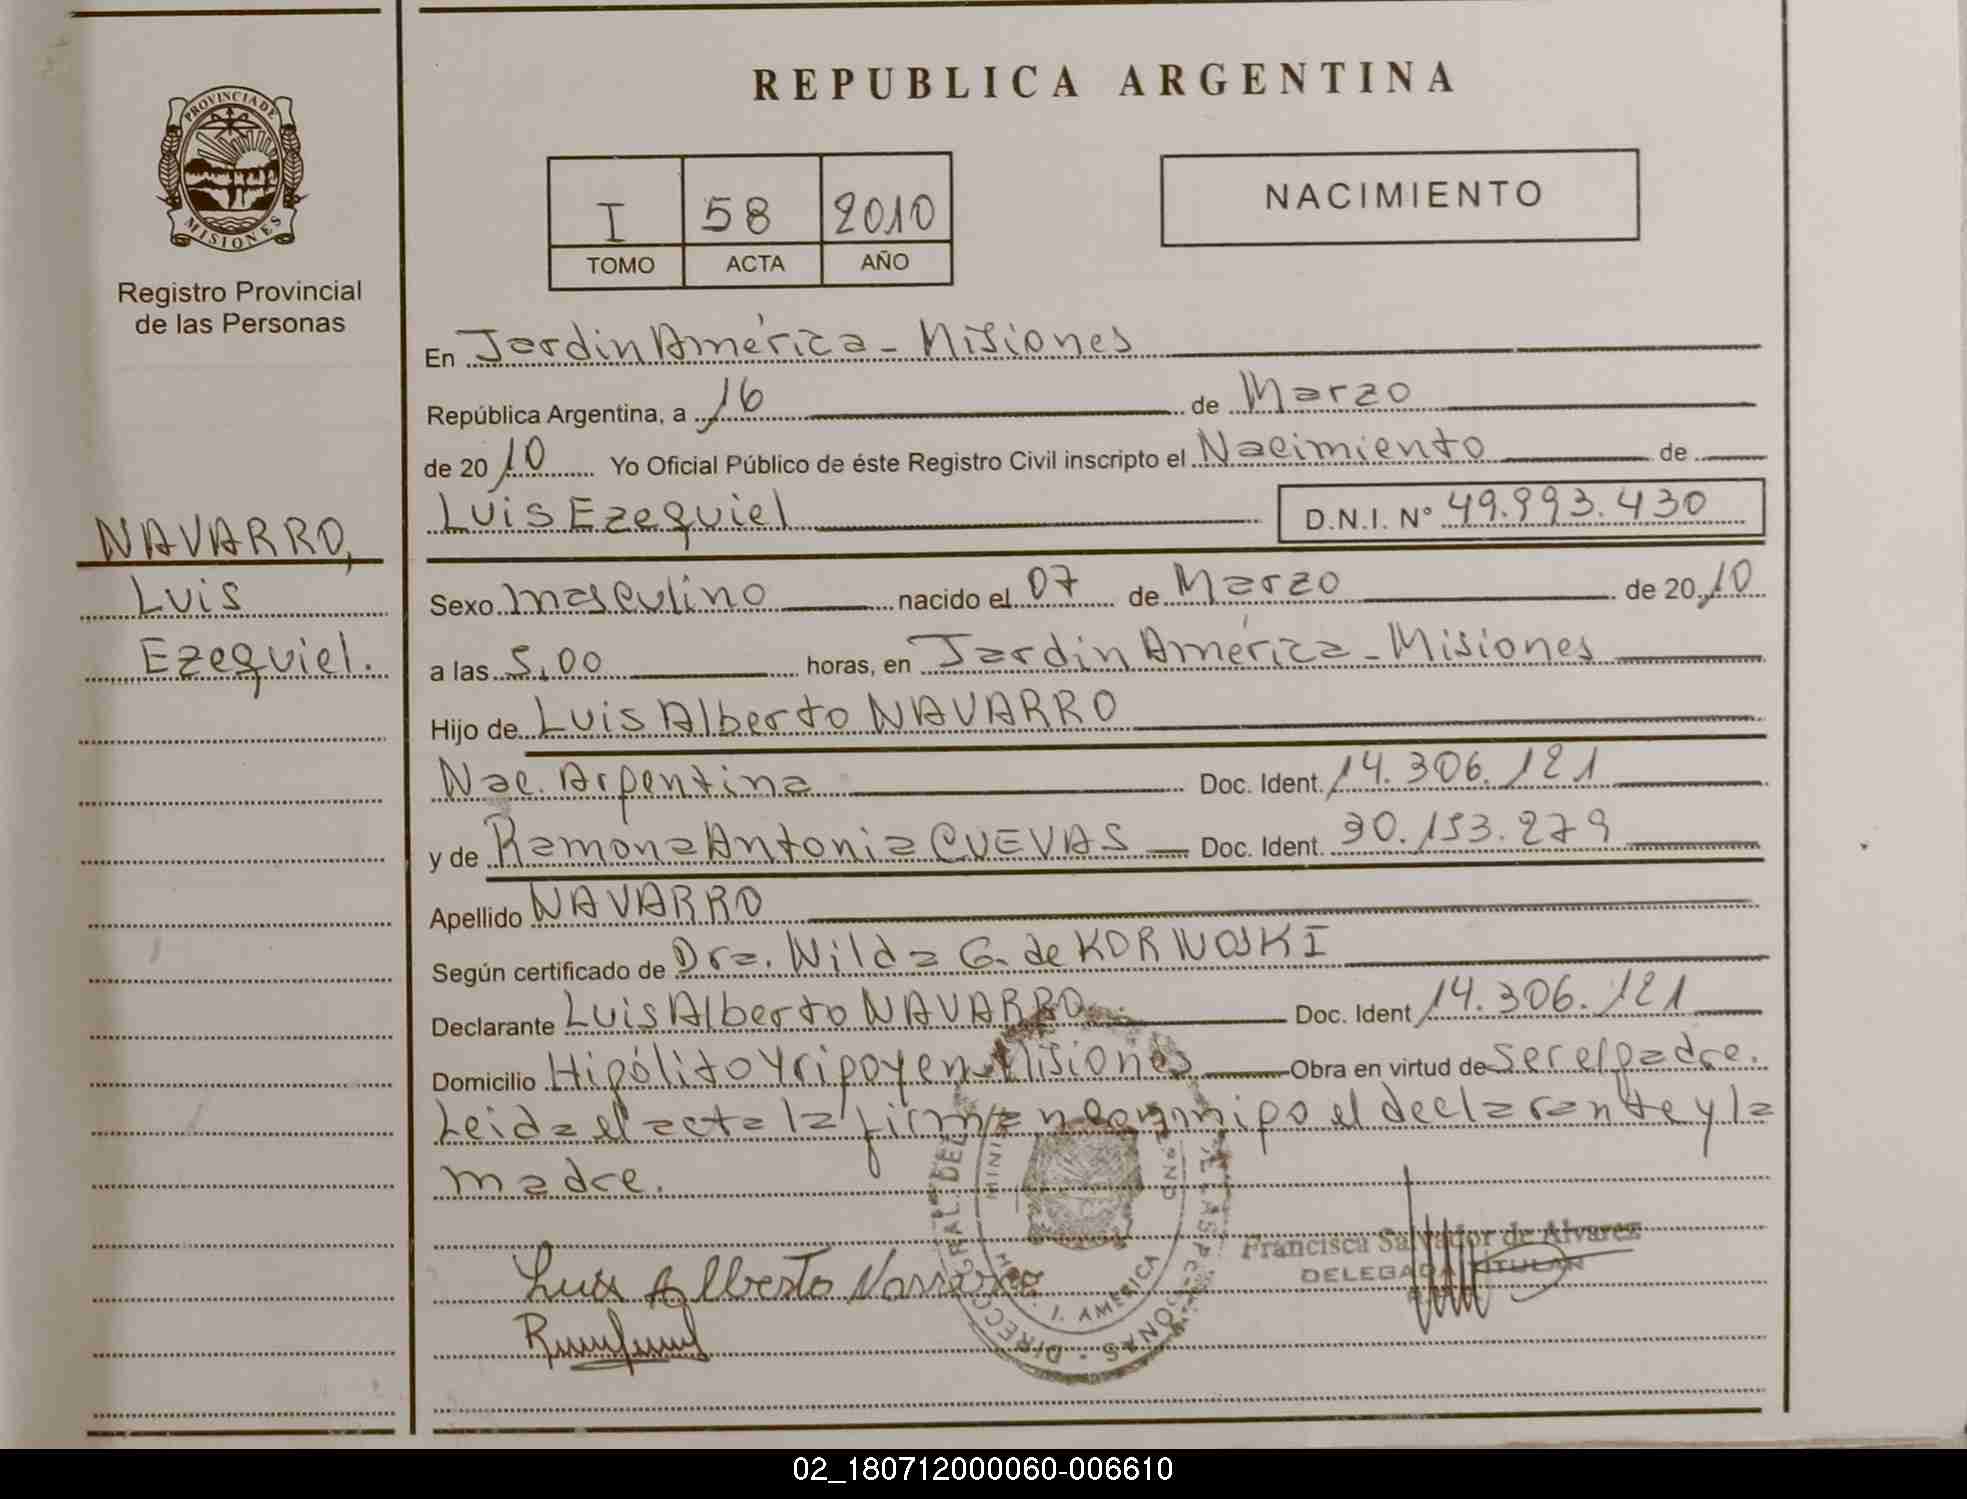 REPUBLICA ARGENTINA
PROVINCIA DE
MISIONES
Registro Provincial
de las Personas
I 58 2010
TOMO ACTA AÑO
NACIMIENTO
En Jardin América - Misiones
República Argentina, a 16 de Marzo
de 2010 Yo Oficial Público de éste Registro Civil inscripto el Nacimiento de
Luis Ezequiel D.N.I. Nº 49.993.430
NAVARRO,
Luis
Ezequiel.
Sexo masculino nacido el 07 de Marzo de 2010
a las 5,00 horas, en Jardin América - Misiones
Hijo de Luis Alberto NAVARRO
Nac. Argentina Doc. Ident. 14.306.121
y de Ramona Antonia CUEVAS Doc. Ident. 30.153.279
Apellido NAVARRO
Según certificado de Dra. Wilda G. de KORNOSKI
Declarante Luis Alberto NAVARRO Doc. Ident 14.306.121
Domicilio Hipólito Yrigoyen - Misiones Obra en virtud de ser el padre.
Leida el acta la firman conmigo el declarante y la
madre.
Luis Alberto Navarro
Francisca Salvador de Alvarez
DELEGADA TITULAR
02_180712000060-006610